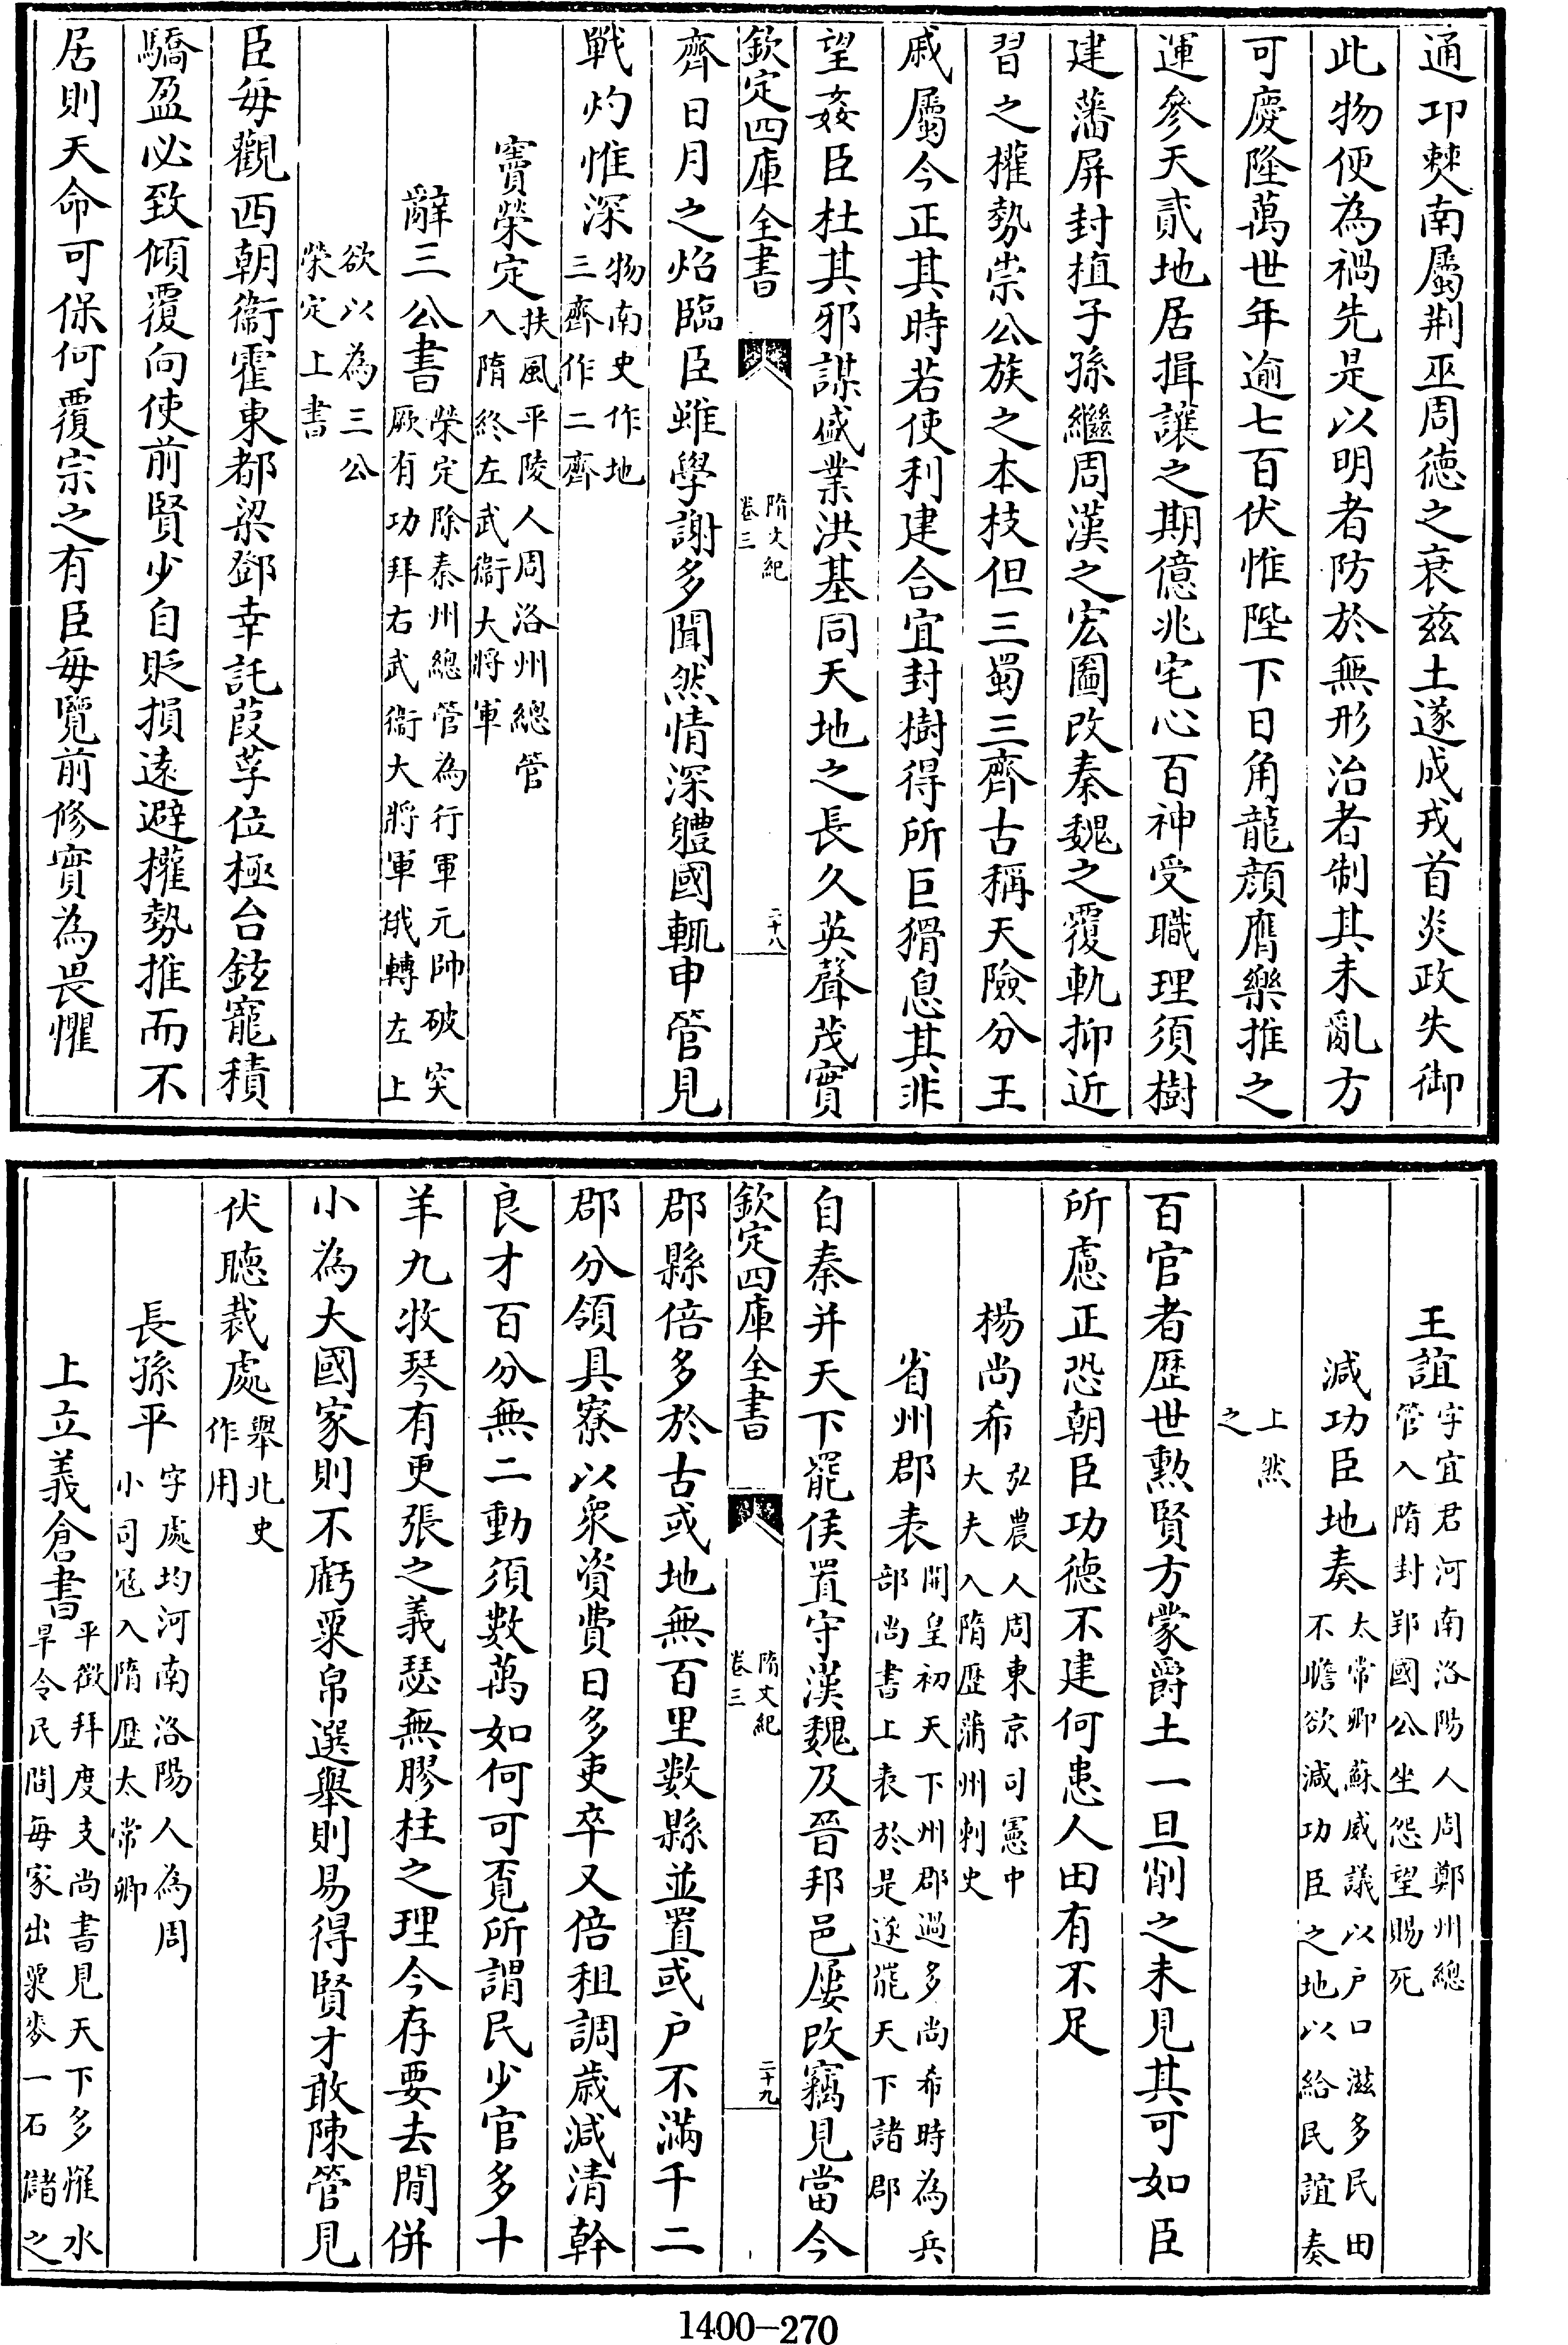 通卭僰南屬荆巫周徳之衰兹土遂成戎首炎政失御
此物便為禍先是以明者防於無形治者制其未亂方
可慶隆萬世年逾七百伏惟陛下日角龍顔膺樂推之
運參天貳地居揖讓之期億兆宅心百神受職理須樹
建藩屏封植子孫繼周漢之宏圖改秦魏之覆軌抑近
習之權勢崇公族之本枝但三蜀三齊古稱天險分王
戚屬今正其時若使利建合宜封樹得所巨猾息其非
望姦臣杜其邪謀盛業洪基同天地之長久英聲茂實
欽定四庫全書
隋文紀
卷三
二十八
齊日月之炤臨臣雖學謝多聞然情深體國輒申管見
戰灼惟深
物南史作地
三齊作二齊
竇榮定
扶風平陵人周洛州總管
入隋終左武衞大將軍
辭三公書
榮定除秦州總管為行軍元帥破突
厥有功拜右武衞大將軍俄轉左上
欲以為三公
榮定上書
臣毎觀西朝衞霍東都梁鄧幸託葭莩位極台鉉寵積
驕盈必致傾覆向使前賢少自貶損遠避權勢推而不
居則天命可保何覆宗之有臣毎覽前修實為畏懼
王誼
字宜君河南洛陽人周鄭州總
管入隋封郢國公坐怨望賜死
減功臣地奏
太常卿蘇威議以户口滋多民田
不贍欲減功臣之地以給民誼奏
上然
之
百官者歴世勲賢方蒙爵土一旦削之未見其可如臣
所慮正恐朝臣功徳不建何患人田有不足
楊尚希
弘農人周東京司憲中
大夫入隋歴蒲州刺史
省州郡表
開皇初天下州郡過多尚希時為兵
部尚書上表於是遂罷天下諸郡
自秦并天下罷侯置守漢魏及晉邦邑屢改竊見當今
欽定四庫全書
隋文紀
卷三
二十九
郡縣倍多於古或地無百里數縣並置或户不滿千二
郡分領具寮以衆資費日多吏卒又倍租調歳減清幹
良才百分無二動須數萬如何可覓所謂民少官多十
羊九牧琴有更張之義瑟無膠柱之理今存要去閒併
小為大國家則不虧粟帛選舉則易得賢才敢陳管見
伏聴裁處
舉北史
作用
長孫平
字處均河南洛陽人為周
小司冦入隋歴太常卿
上立義倉書
平徴拜度支尚書見天下多罹水
旱令民間毎家出粟麥一石儲之
1400-270